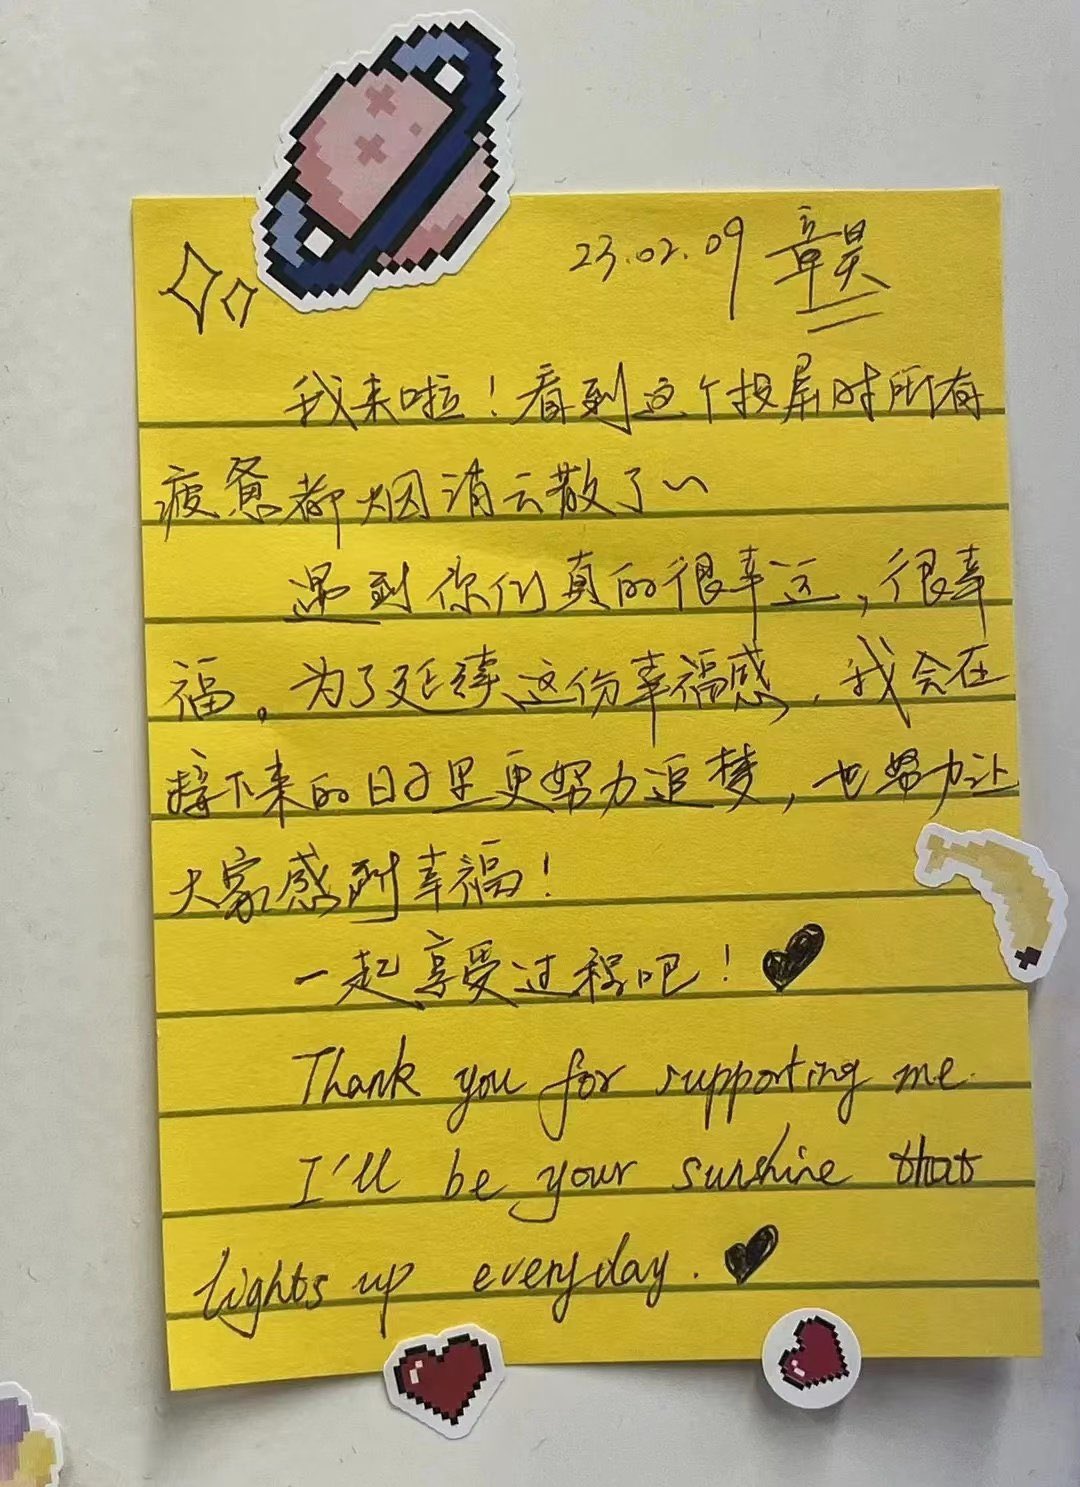 23.02.09 章昊
我来啦！看到这个投屏时所有
疲惫都烟消云散了~
遇到你们真的很幸运，很幸
福。为了延续这份幸福感，我会在
接下来的日子里更努力追梦，也努力让
大家感到幸福！
一起享受过程吧！
Thank you for supporting me.
I'll be your sunshine that
lights up everyday.